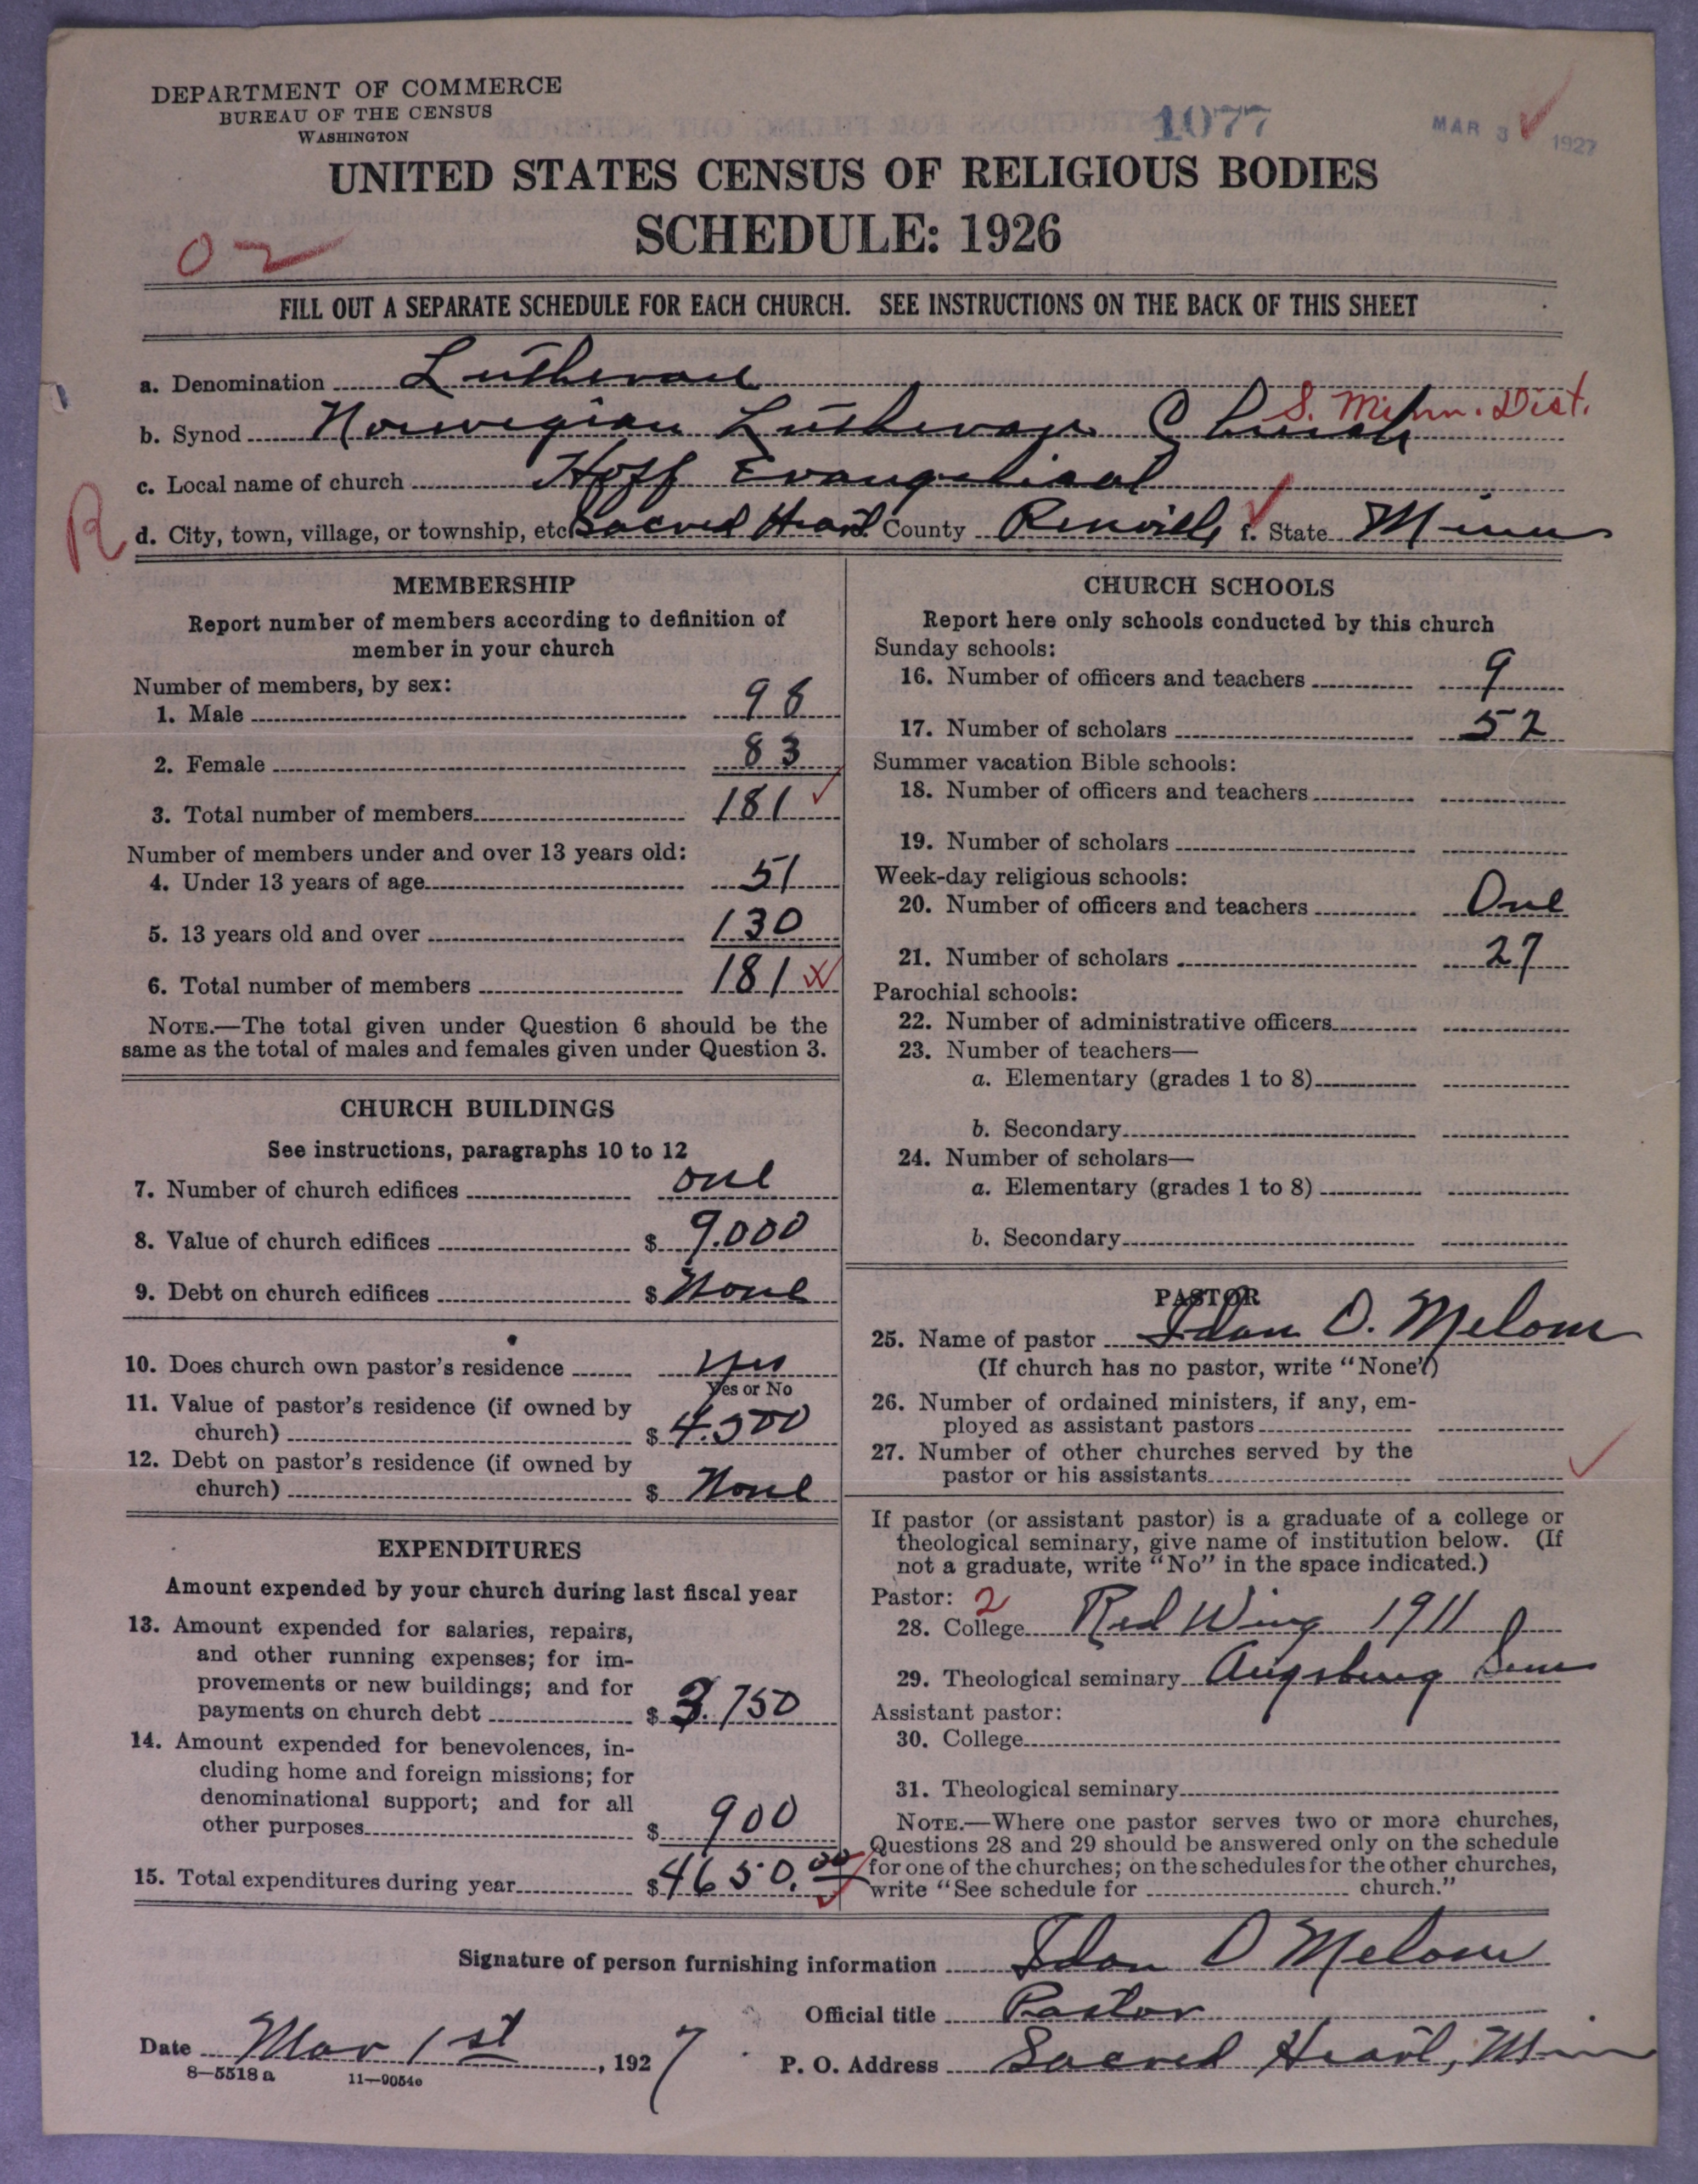 DEPARTMENT OF COMMERCE
BUREAU OF THE CENSUS
WASHINGTON
1077
MAR 3 1927
UNITED STATES CENSUS OF RELIGIOUS BODIES
SCHEDULE: 1926
02
FILL OUT A SEPARATE SCHEDULE FOR EACH CHURCH. SEE INSTRUCTIONS ON THE BACK OF THIS SHEET
a. Denomination Lutheran
b. Synod Norwegian Lutheran Church S. Minn. Dist.
c. Local name of church Hoff Evangelical
R d. City, town, village, or township, etc. Sacred Heart County Renville f. State Minn
MEMBERSHIP
Report number of members according to definition of
member in your church
Number of members, by sex:
1. Male 98
2. Female 83
3. Total number of members 181
Number of members under and over 13 years old:
4. Under 13 years of age 51
5. 13 years old and over 130
6. Total number of members 181
NOTE.—The total given under Question 6 should be the
same as the total of males and females given under Question 3.
CHURCH BUILDINGS
See instructions, paragraphs 10 to 12
7. Number of church edifices one
8. Value of church edifices $ 9.000
9. Debt on church edifices $ None
10. Does church own pastor's residence yes
Yes or No
11. Value of pastor's residence (if owned by
church) $ 4.500
12. Debt on pastor's residence (if owned by
church) $ None
EXPENDITURES
Amount expended by your church during last fiscal year
13. Amount expended for salaries, repairs,
and other running expenses; for im-
provements or new buildings; and for
payments on church debt $ 3.750
14. Amount expended for benevolences, in-
cluding home and foreign missions; for
denominational support; and for all
other purposes $ 900
15. Total expenditures during year $ 4650.00
CHURCH SCHOOLS
Report here only schools conducted by this church
Sunday schools:
16. Number of officers and teachers 9
17. Number of scholars 52
Summer vacation Bible schools:
18. Number of officers and teachers
19. Number of scholars
Week-day religious schools:
20. Number of officers and teachers One
21. Number of scholars 27
Parochial schools:
22. Number of administrative officers
23. Number of teachers—
a. Elementary (grades 1 to 8)
b. Secondary
24. Number of scholars—
a. Elementary (grades 1 to 8)
b. Secondary
PASTOR
25. Name of pastor Idan O. Melom
(If church has no pastor, write "None")
26. Number of ordained ministers, if any, em-
ployed as assistant pastors
27. Number of other churches served by the
pastor or his assistants
If pastor (or assistant pastor) is a graduate of a college or
theological seminary, give name of institution below. (If
not a graduate, write "No" in the space indicated.)
Pastor: 2
28. College Red Wing 1911
29. Theological seminary Augsburg Sem
Assistant pastor:
30. College
31. Theological seminary
NOTE.—Where one pastor serves two or more churches,
Questions 28 and 29 should be answered only on the schedule
for one of the churches; on the schedules for the other churches,
write "See schedule for church."
Signature of person furnishing information Idan O Melom
Official title Pastor
Date Mar 1st, 1927 P. O. Address Sacred Heart, Minn
8—5518 a 11—9054e